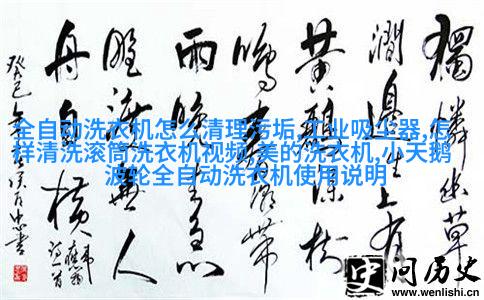 獨憐幽草
澗邊生上有
黃鸝深樹
鳴春潮帶
雨晚来急
野渡無人
舟自橫
癸巳年
全自动洗衣机怎么清理污垢,工业吸尘器,怎
样清洗滚筒洗衣机视频,美的洗衣机,小天鹅
波轮全自动洗衣机使用说明
史问历史
www.wenlishi.cn